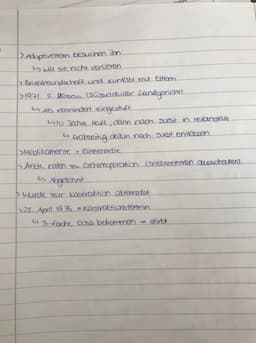 > Adoptiveltern besuchen ihn
↳ will sie nicht verlieren
> Brieffreundschaft und Kontakt mit Eltern
> 1971 2. Prozess (Düsseldorfer Landgericht)
↳ als vermindert eingestuft
↳ 10 Jahre Haft, dann nach Suizid in Heilanstalt
↳ frühzeitig dahin nach entlassen
> Medikamente + Einzelzelle
> Ärzte raten zu Gehirnoperation (ausschalten)
↳ Abgelehnt
> Wurde zur Kastration überredet
> 28. April 1976 = Kastrationstermin
↳ 3-fache Dosis bekommen → stirbt